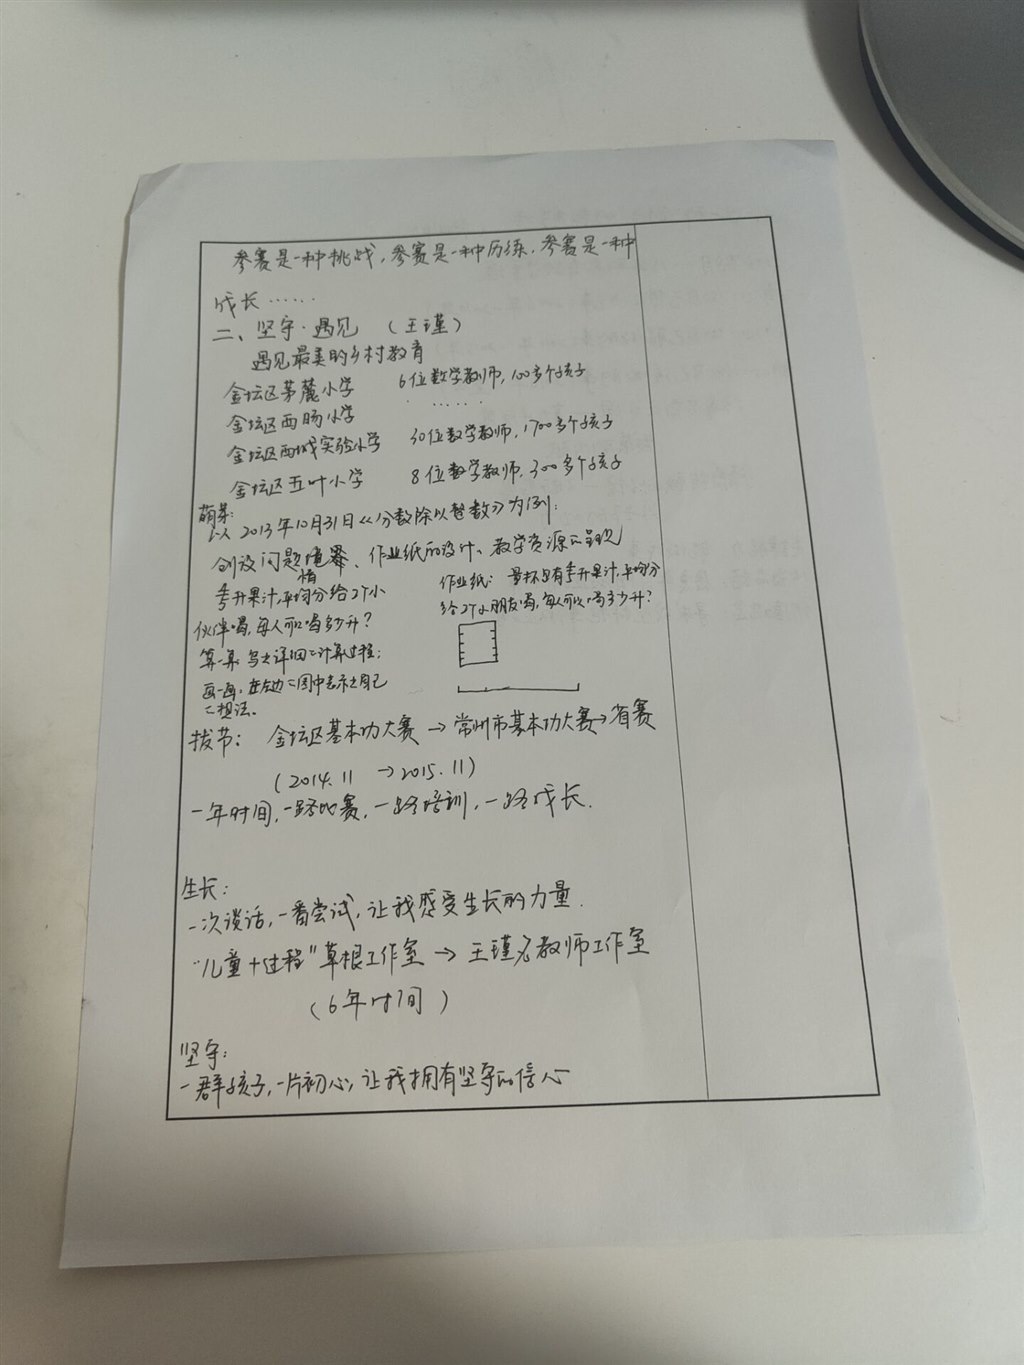 参赛是一种挑战,参赛是一种历练,参赛是一种
成长……
二、坚守·遇见 (王瑾)
遇见最美的乡村教育
金坛区茅麓小学 6位数学教师,100多个孩子
金坛区西旸小学 ……
金坛区西城实验小学 30位数学教师,1700多个孩子
金坛区五叶小学 8位数学教师,300多个孩子
萌芽:
以2013年10月31日《分数除以整数》为例:
创设问题情境、作业纸的设计、教学资源的呈现
升果汁,平均分给2个小
伙伴喝,每人可以喝多少升?
算一算:写出详细的计算过程;
画一画:在左边的图中表示出自己
的想法。
作业纸: 量杯里有 升果汁,平均分
给2个小朋友喝,每人可以喝多少升?
拔节: 金坛区基本功大赛→常州市基本功大赛→省赛
(2014.11 →2015.11)
一年时间,一路比赛,一路培训,一路成长.
生长:
一次谈话,一番尝试,让我感受生长的力量.
“儿童+过程”草根工作室→王瑾名教师工作室
(6年时间)
坚守:
一群孩子,一片初心,让我拥有坚守的信心